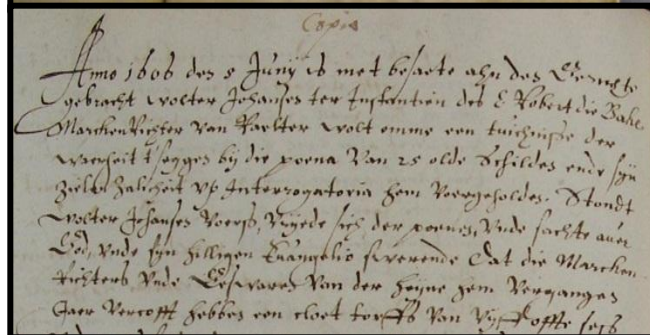 Copia
Anno 1606 den 5 Junij is met besaete ahn des Gerichte
gebracht Wolter Johansen ter Instantien des E Robert die Bake
Marckenrichter van Raelter wolt omme een tuichnisse der
waerheit t'seggen bij die poena van 25 olde Schilden ende syn
Zielen Zalicheit vp Interrogatoria hem voergeholden. Stondt
Wolter Johansen voerss, vryede sich der poenen, vnde sachte auer
God, vnde syn hilligen Euangelio swerende Dat die Marcken
Richters vnde Geswaren van der heyne hem vergangen
Jaer vercofft hebben een cloet torffs van vyff offte sess